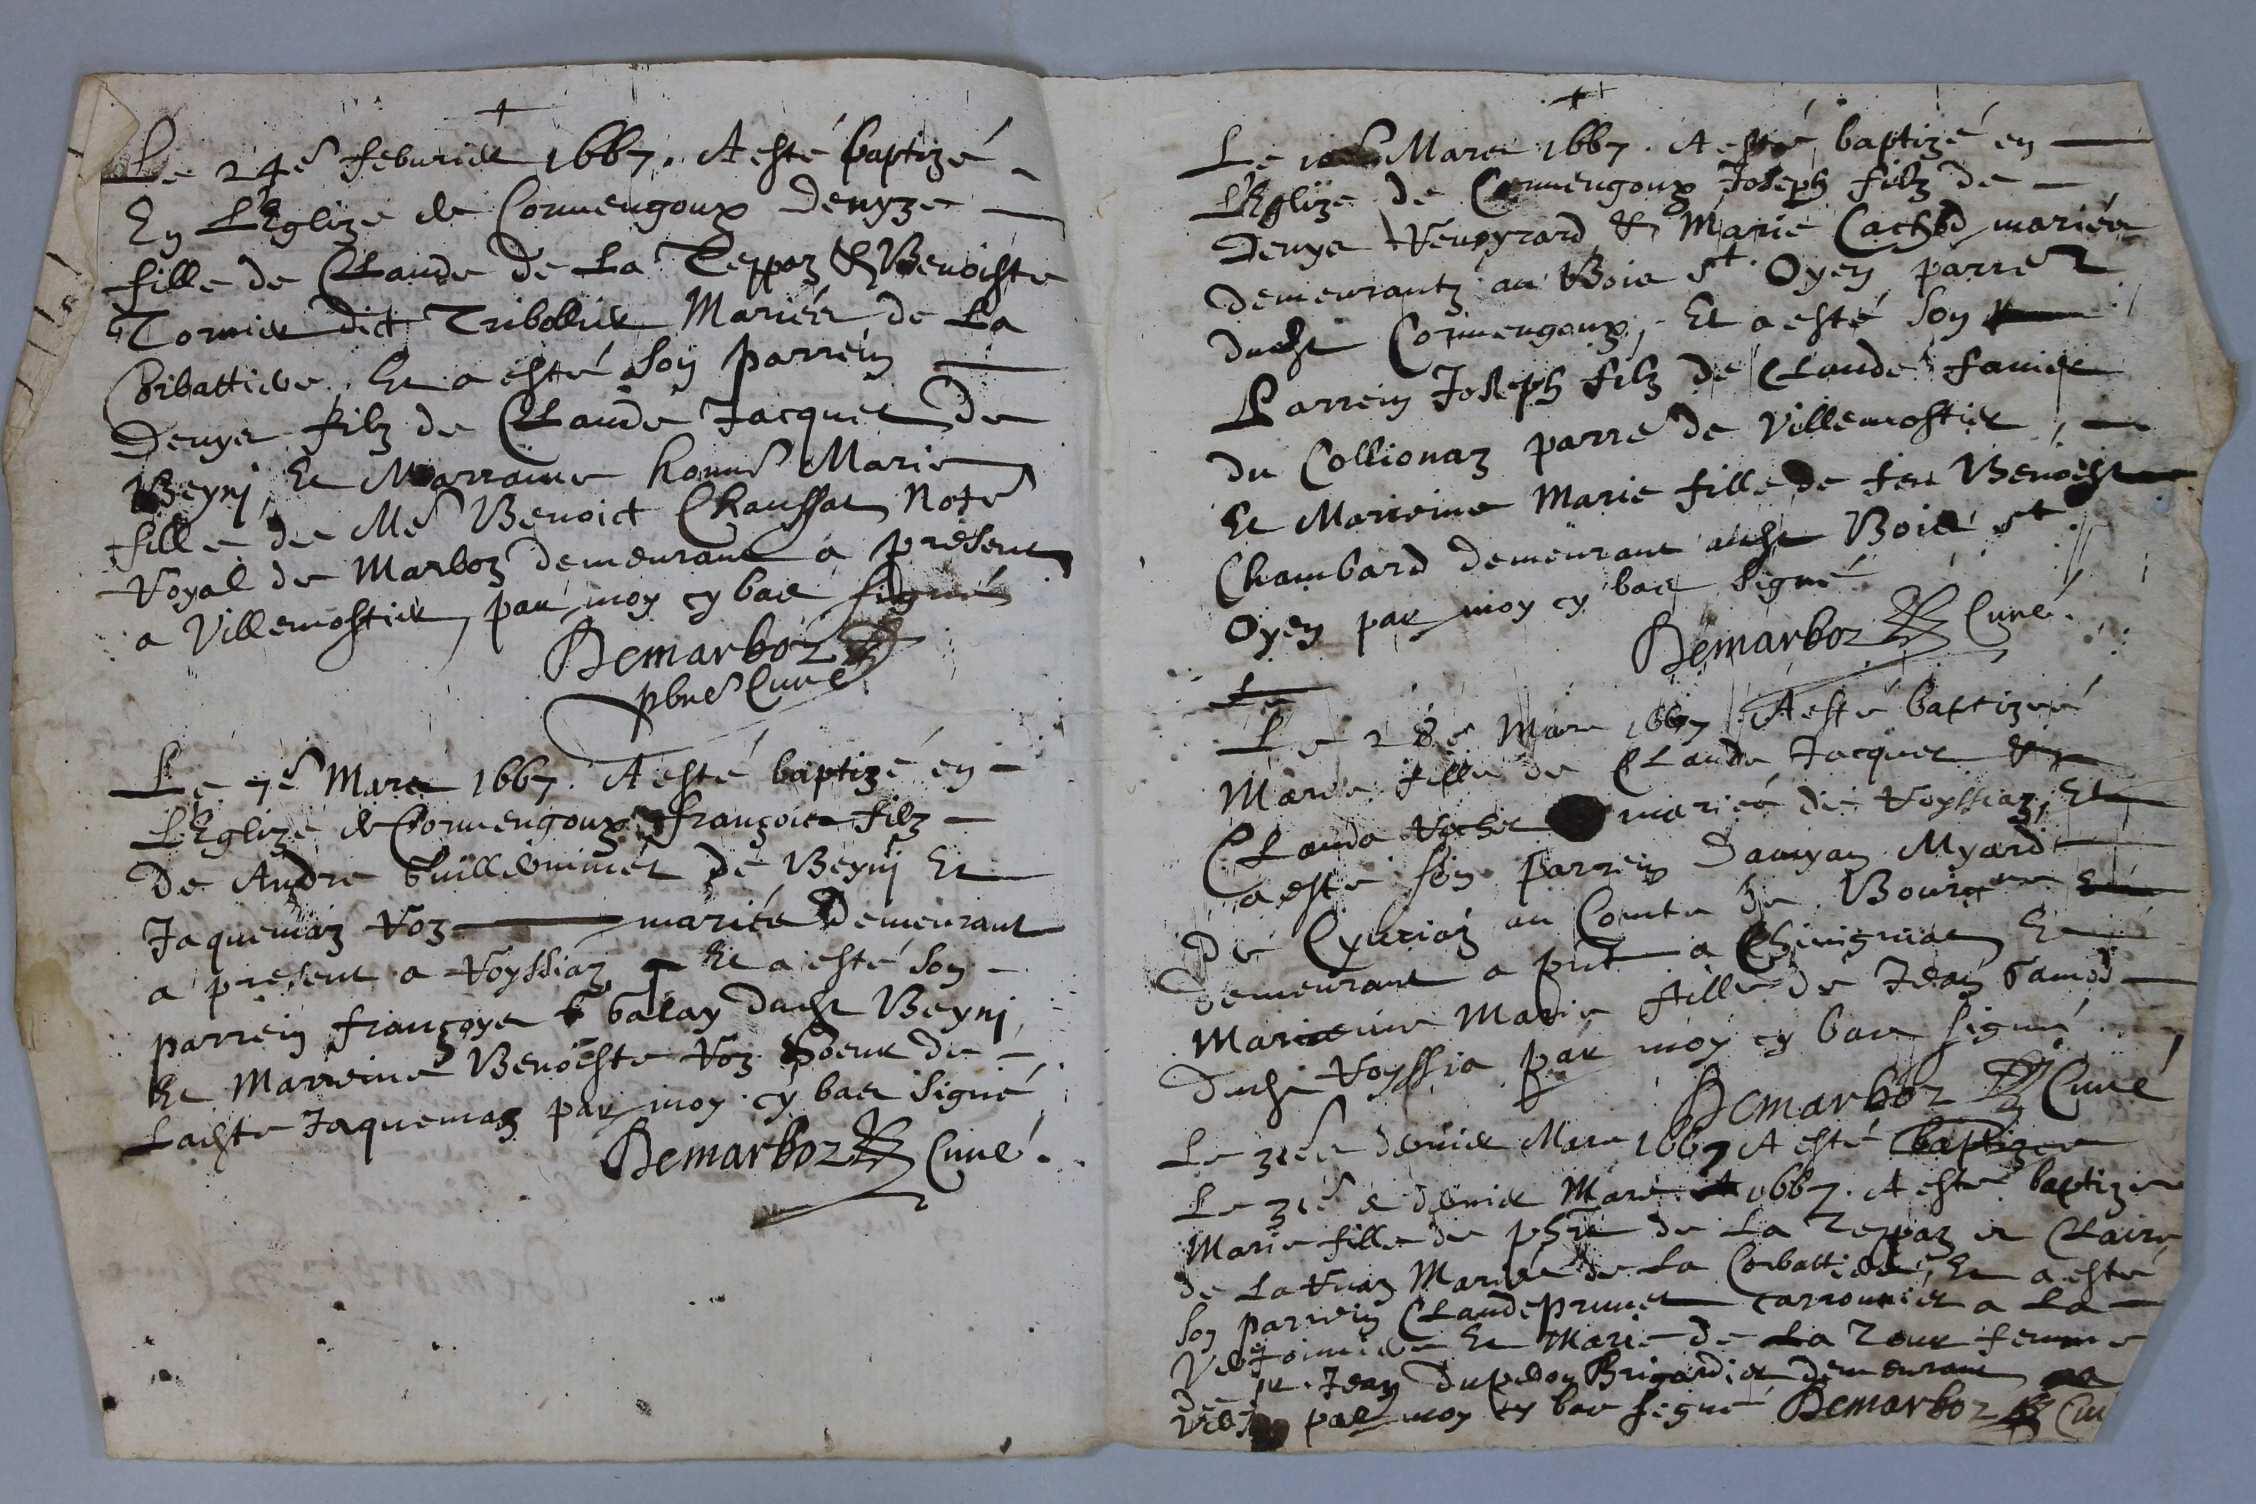 Le 24e feburier 1667. A esté baptizé
En L'Eglize de Cormengoux Denyze
fille de CLaude de La Teppaz & Benoiste
Tornier dict Tribollier Mariés de La
Corbattiere. Et a esté son parrein
Denys filz de CLaude Jacquet de
Beyni, Et Marraine honne Marie
fille de Me Benoict Chaussat Note
Royal de Marboz demeurant a present
a Villemostier, par moy cy bas signé
Demarboz
pbre Curé
Le 7e Mars 1667. A esté baptizé en
L'Eglize de Cormengoux françois filz
De Andre Guilleminet de Beyni Et
Jaquemaz Voz mariés Demeurant
a present a Voyssiaz Et a esté son
parrein françoys Galay dudt Beyni
Et Marreine Benoiste Voz soeur de
Ladte Jaquemaz par moy cy bas signé
Demarboz Curé.
Le Mars 1667. A esté baptizé en
L'Eglize de Cormengoux Joseph filz de
Denys Veupyrard & Marie Cachod mariés
demeurantz au Bois St Oyen parre
dudt Cormengoux, Et a esté son
Parrein Joseph filz de CLaude favier
du Collionaz parre de Villemostier,
Et Marreine Marie fille de feu Benoist
Chambard demeurant audt Bois St
Oyen par moy cy bas signé
Demarboz Curé.
Le
Le 28e Mars 1667 A esté baptizeé
Marie fille de CLaude Jacquet &
CLauda Vocher mariés de Voyssiaz, Et
a esté son parrein Damyan Myard
De Cyuriaz au Comte de Bourgne
demeurant a prnt a Chevignat Et
Marreine Marie fille de Jean Gamod
dudt Voyssia par moy cy bas signé
Demarboz Curé
Le 31e dernier Mars 1667 A esté baptizee
Le 31e & dernier Mars 1667. A esté baptizee
Marie fille de phre de La Teppaz et Claire
de La Vuaz Mariés de La Corbattiere, Et a esté
son parrein CLaude prunet carronnier a La
Et Marie de La Tour femme
de sr. Jean Dupedon Brigardier demeurant
par moy cy bas signé Demarboz Cu